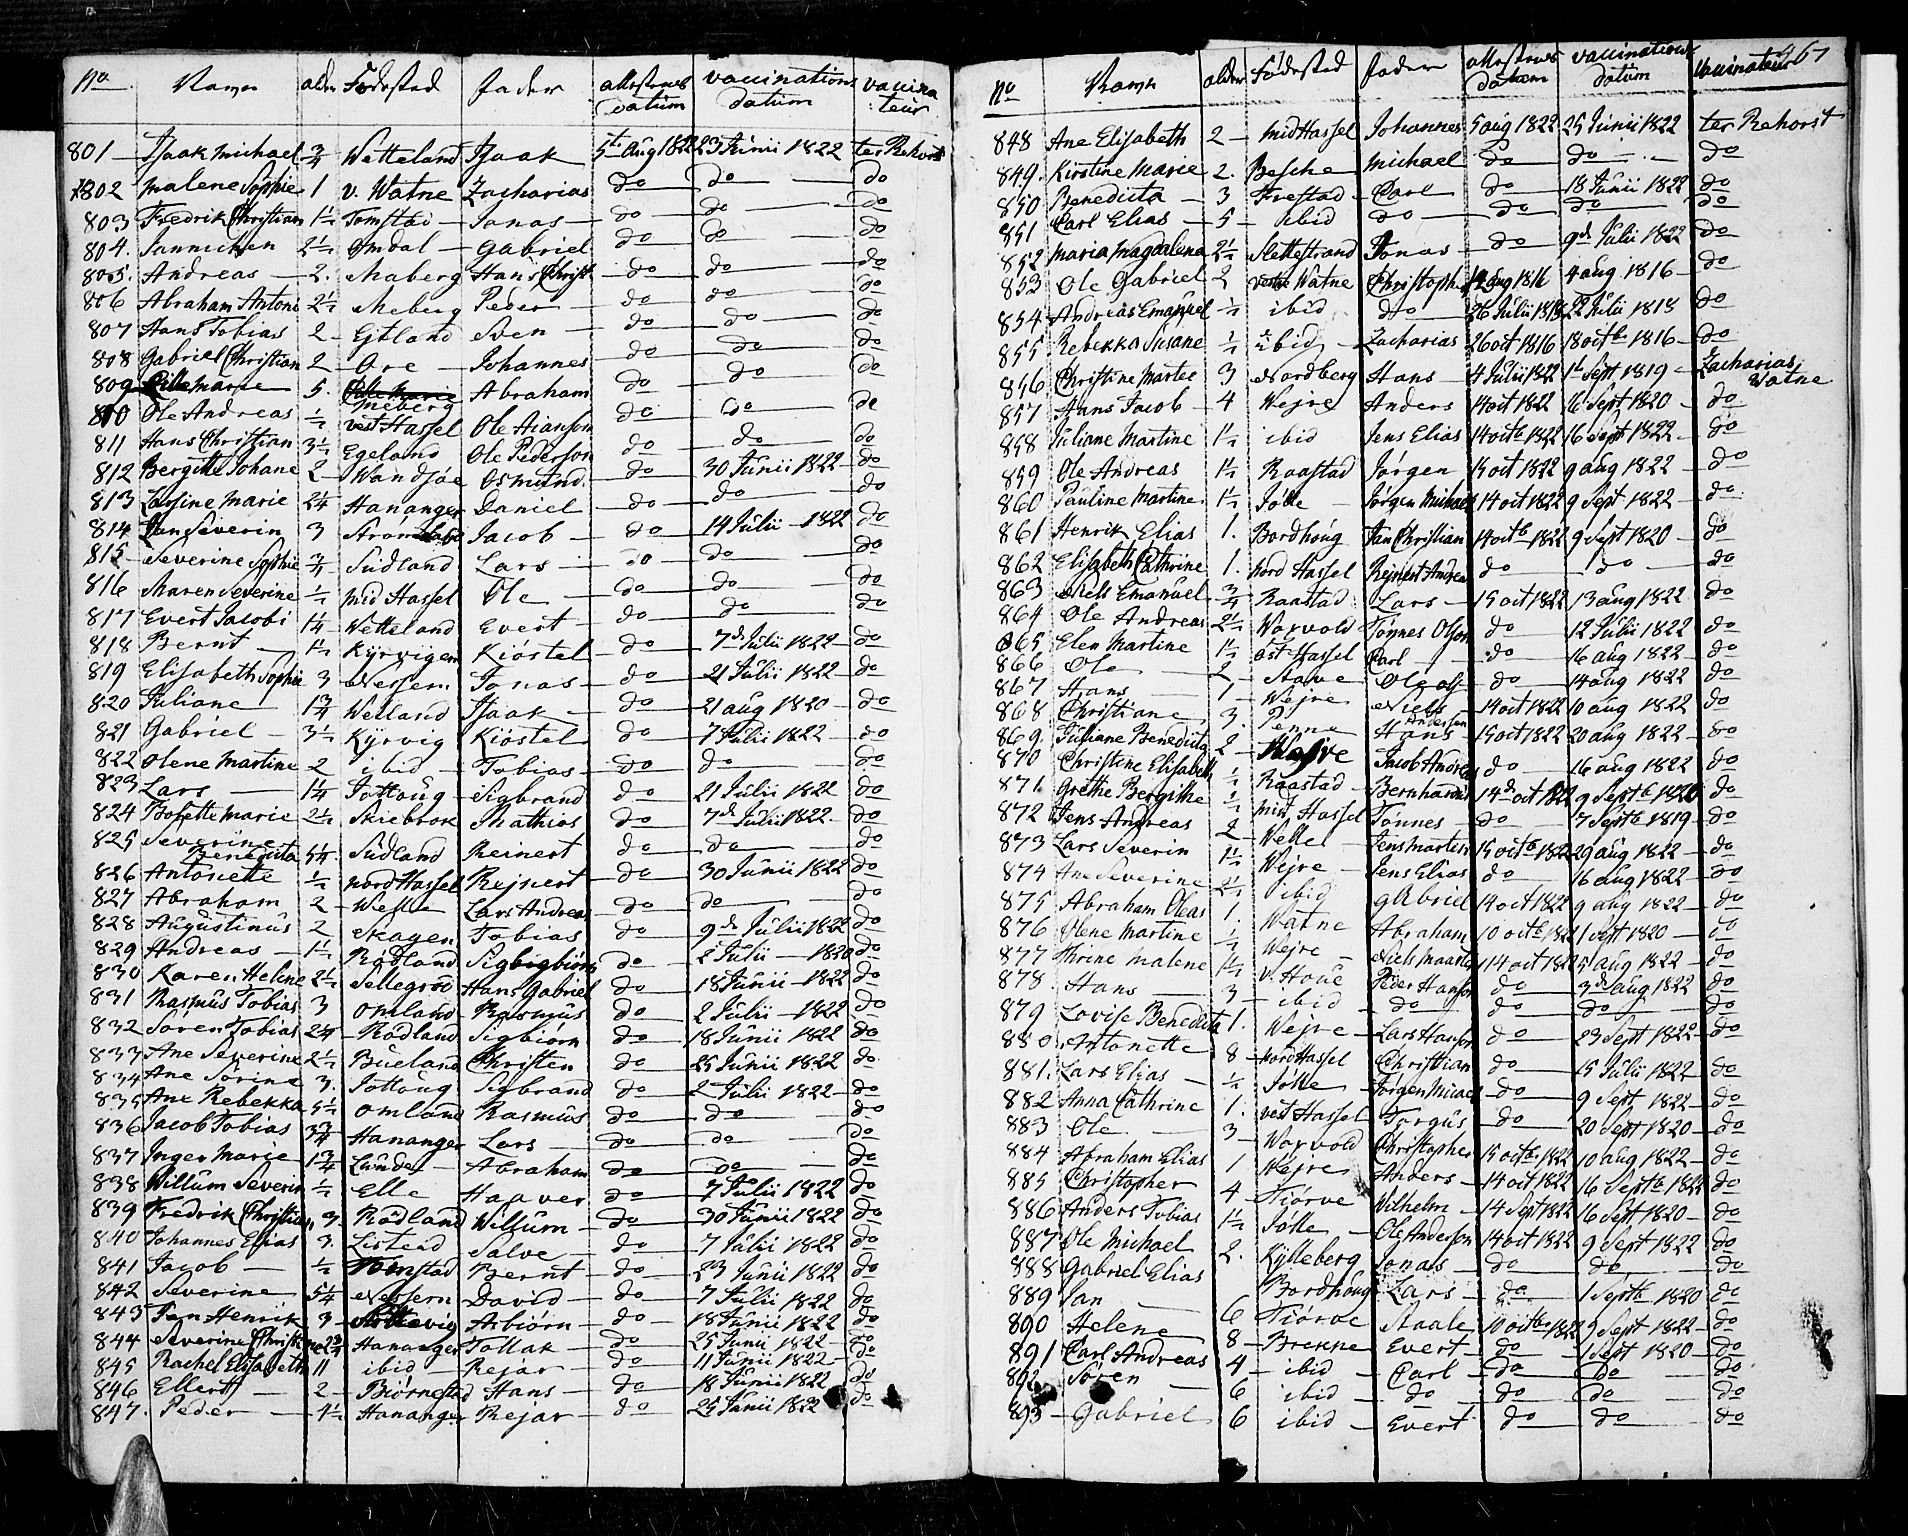 No Navn alder Fødestad Fader attestens datum vaccinations datum vaccinateur
801 Isaak Michael 3/4 Vetteland Isaak 5t Aug 1822 23 Junii 1822 ter Rehorst
802 Malene Sophie 1 v. Watne Zacharias do do do
803 Fredrik Christian 1½ Tomstad Jonas do do do
804. Jannichen 2½ Omdal Gabriel do do do
805. Andreas 2. Maberg Hans Christ. do do do
806 Abraham Antoni 2½ Meberg Peder do do do
807 Hans Tobias 2 Ejtland Sven do do do
808 Gabriel Christian 2 Ore Johannes do do do
809 Cille Marie 5. Meberg Abraham do do do
810 Ole Andreas ½ vest Hassel Ole Hansson do do do
811 Hans Christian 3½ Egeland Ole Pederson do do do
812 Bergitte Johane 2 Wandsøe Osmund do 30 Junii 1822 do
813 Lassine Marie 2¼ Hananger Daniel do do do
814 Jan Severin 3 Jacob do 14 Julii 1822 do
815 Severine Sophie 3/4 Sudland Lars do do do
816 Maren Severine ½ Mid Hassel Ole do do do
817 Evert Jacobi 1¼ Vetteland Evert do do do
818 Bernt 1½ Kyrvigen Kiøstel do 7de Julii 1822 do
819 Elisabeth Sophie 3 Nessem Jonas do 21 Julii 1822 do
820 Juliane 1¾ Welland Isaak do 21 aug 1820 do
821 Gabriel 3½ Kyrvig Kiøstel do 7 Julii 1822 do
822 Olene Martine 2 ibid Tobias do do do
823 Lars 1¼ Jottoug Sigbrand do 21 Julii 1822 do
824 Bolette Marie 2½ Skiebrok Mathias do 7de Julii 1822. do
825 Severine Benedicta 5¼. Sudland Reinert do do do
826 Antonette ½ nord Hassel Rejnert do 30 Junii 1822 do
827 Abraham 2 Welle Lars Andreas do do do
828 Augustinus 2 Skagen Tobias do 9de Julii 1822 do
829 Andreas 1½ Rødland Sigbiørn do 2 Julii 1820 do
830 Karen Helene 2½ Sellegrod Hans Gabriel do 18 Junii 1822 do
831 Rasmus Tobias 3 Omland Rasmus do 2 Julii 1822 do
832 Søren Tobias 2¼ Rødland Sigbiørn do 18 Junii 1822 do
833 Ane Severine 2½ Bueland Christen do 25 Junii 1822 do
834 Ane Sorine 3. Jottoug Sigbrand do 2 Julii 1822 do
835 Ane Rebekka 5½ Omland Rasmus do do do
836 Jacob Tobias 3¾ Hananger Lars do do do
837 Inger Marie 1¾ Lunde Abraham do do do
838 Willum Severin ½ Elle Haaver do 7 Julii 1822 do
839 Fredrik Christian 3 Rødland Willum do 30 Junii 1822 do
840 Johannes Elias 3. Listead Salve do 7 Julii 1822 do
841 Jacob ½ Tomstad Bernt do 23 Junii 1822 do
842 Severine 5¼ Nessem David do 7 Julii 1822 do
843 Jan Henrik 3 Asbiørn do 18 Junii 1822 do
844 Severine Christine 2¾ Hananger Tollak do 25 Junii 1822 do
845 Rachel Elisabeth 11 ibid Rejar do 11 Junii 1822 do
846 Ellert 2 Biørnestad Hans do 18 Junii 1822 do
847. Peder 4½ Hananger Rejar do 25 Junii 1822 do
467
No Navn alder Fødestad Fader attestens datum vaccinations datum Vaccinateur
848 Ane Elisabeth 2 Mid Hassel Johannes 5 aug 1822 25 Junii 1822 ter Rehorst
849. Kirstine Marie 2. Besche Michael do do do
850 Benedicta 3 Frestad Carl do 18 Junii 1822 do
851 Carl Elias 5 ibid do do do do
852 Maria Magdalena 2½ Slettestrand Jonas do 9de Julii 1822 do
853 Ole Gabriel 2 vestre Watne Christopher aug 1816 4 aug 1816 do
854 Andreas Emanuel ½ ibid do 26 Julii 1818 22 Julii 1818 do
855 Rebekka Susane ½ ibid Zacharias 26 oct 1816 18 octb 1816 do
856 Christine Martee 3 Nordberg Hans 4 Julii 1822 1t Sept 1819 Zacharias Watne
857 Hans Jacob 4 Wejre Anders 14 oct 1822 16 Sept 1820 do
858 Juliane Martine 1½ ibid Jens Elias 14 octb 1822 16 Sept 1822 do
859 Ole Andreas 1½ Raastad Jørgen 15 oct 1822 9 aug 1822 do
860 Pauline Martine 1½ Jølle Jørgen Michael 14 oct 1822 9 Sept 1822 do
861 Henrik Elias 1. Bordhoug Jan Christian 14 octb 1822 9 Sept 1820 do
862 Elisabeth Cathrine 1. Nord Hassel Rejnert Andrea do do do
863 Niels Emanuel ¾ Raastad Lars 15 oct 1822 13 aug 1822 do
864 Ole Andreas 2½ Worvold Tønnes Olson do 12 Julii 1822 do
865 Elen Martine 1½ ost Hassel Carl do 16 aug 1822 do
866 Ole 2 Stave Ole do 14 aug 1822 do
867 Hans 1 Wejre Niels 14 oct 1822 10 aug 1822 do
868 Christiane 3. Penne Hans Andersen 15 oct 1822 20 aug 1822 do
869. Juliane Benedicta 2 Wejre Jacob Andreas do 16 aug 1822 do
870 Christine Elisabeth ½ Raastad Bernhardus 14de oct 1822 9 Septb 1820 do
871. Grethe Bergithe ½ mid Hassel Tønnes do 7 Septb 1819 do
872 Jens Andreas 2 Welle Jens Marten 15 octb 1822 29 aug 1822 do
873 Lars Severin 1½ Wejre Jens Elias do 16 aug 1822 do
874 Ane Severine 2½ ibid Gabriel 14 oct 1822 9 aug 1822 do
875 Abraham Oleas 1. Watne Abraham 10 octb 1822 1 Sept 1820 do
876 Olene Martine ½ Wejre Niels Maarten 14 oct 1822 5 aug 1822 do
877 Thrine Malene 1½ v. Houe Peder Hanson do 3de aug 1822 do
878. Hans 3 ibid do do do do
879 Lovise Benedicta 1. Wejre Lars Hanson do 23 Sept 1822 do
880. Antonette 8 Nord Hassel Christian do 15 Julii 1822 do
881. Lars Elias ½ Jølle Jørgen Micael do 9 Sept 1822 do
882 Anna Cathrine 1. vest Hassel Torgus do 20 Sept 1820 do
883 Ole 3 Worvold Christopher 15 octb 1822 10 aug 1822 do
884 Abraham Elias 1 Wejre Anders 14 oct 1822 16 Septb 1822 do
885 Christopher 4 Tiørve Wilhelm 14 Sept 1822 16 Sept 1820 do
886 Anders Tobias 1½ Jølle Ole Anderson 14 oct 1822 9 Sept 1822 do
887 Ole Michael 2. Kylleberg Jonas do do do
888 Gabriel Elias Bordhoug Lars do 1 Septb 1820 do
889 Jan 6 Tiørve Staale 10 octb 1822 9 Sept 1822 do
890 Helene 8 Brekne Evert do 1 Sept 1820 do
891 Carl Andreas 4 ibid Carl do do do
892 Søren 6 ibid do do do do
893 Gabriel 6 ibid Evert do do do